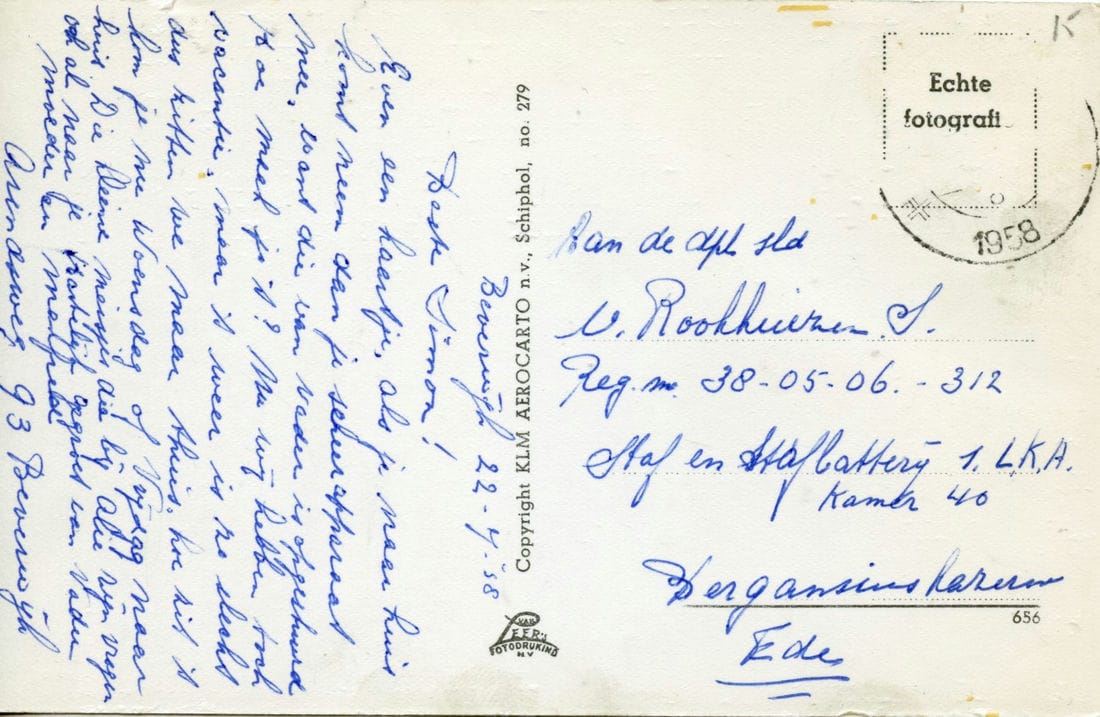 Beverwijk 22-7-'58
Beste Simon!
Even een kaartje, als je naar huis
komt neem dan je scheerapparaat
mee, want die van vader is opgestuurd
hoe meer je is? Nu wij hebben toch
vacantie, maar is weer is zo slecht
dus zitten we maar thuis, hoe zit is
kom je nu Woensdag of Vrijdag naar
huis Die kleine meisjes die bij Alie zijn vragen
ook al naar je hartelijk gegroet van Vader
moeder en
Arendsweg 93 Beverwijk
Copyright KLM AEROCARTO n.v., Schiphol, no. 279
VAN LEER'S
FOTODRUKIND
N.V.
Echte
fotografi
1958
K
Aan de dpl sld
v. Rookhuizen S.
Reg. nr. 38-05-06.-312
Staf en Stafbatterij 1. L.K.A.
Kamer 40
kazerne
Ede
656